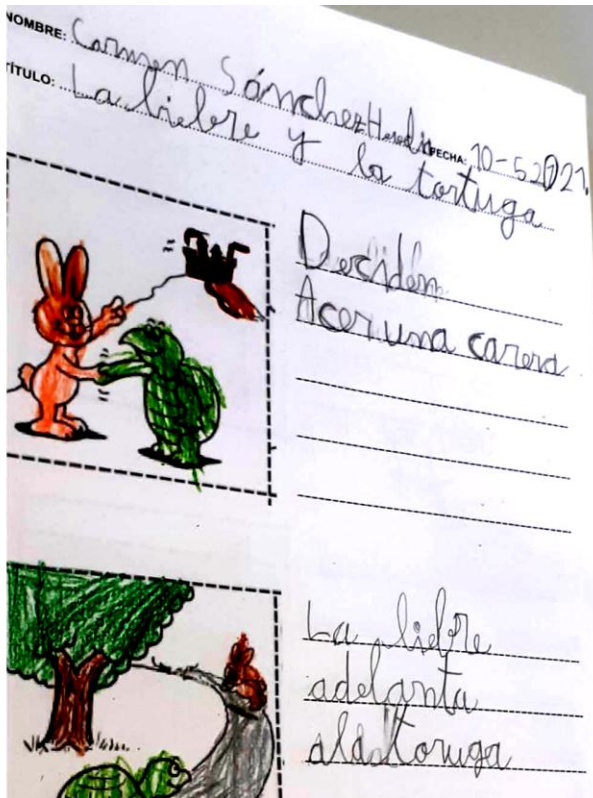 NOMBRE: Carmen Sánchez Heredia FECHA: 10-52021.
TÍTULO: La liebre y la tortuga
Deciden
Acer una carera
La liebre
adelanta
ala toruga